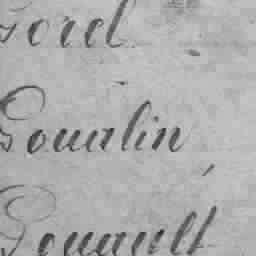 Gorel
Goualin
Gouault